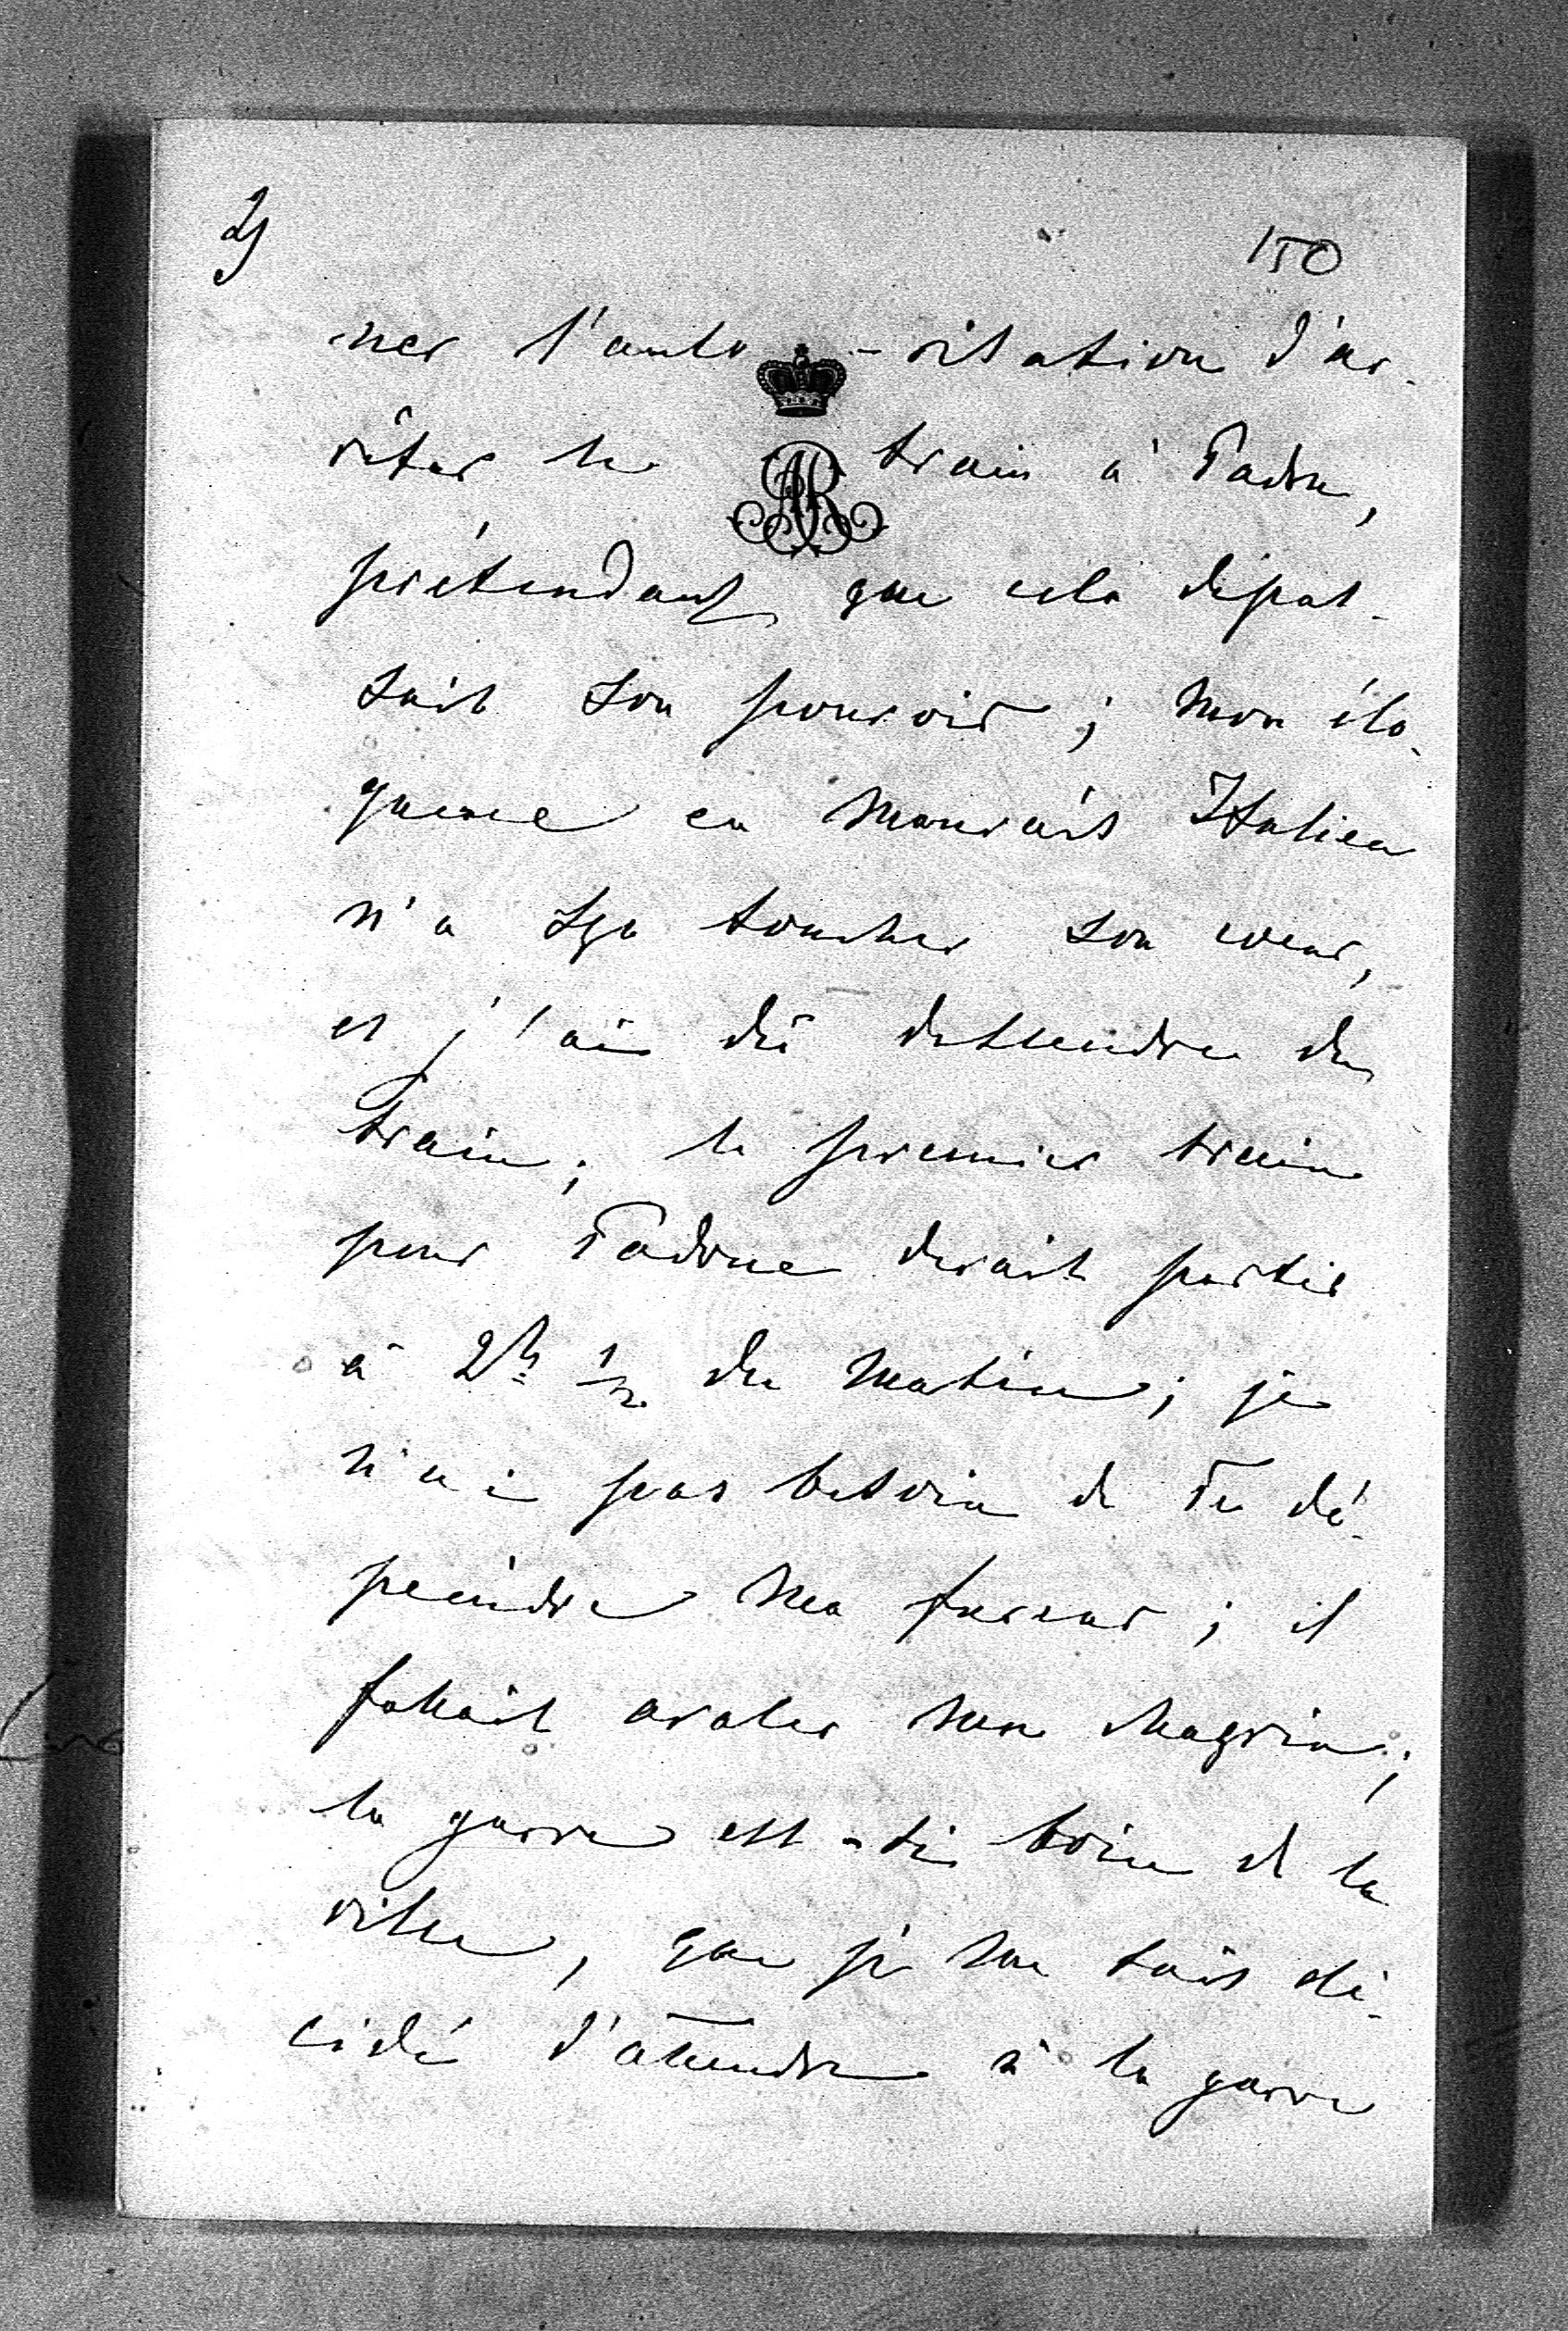 2) 150
ner l'auto-risation d'ar-
rêter le train à Padou,
prétendant que cela dépas-
sait son pouvoir; mon élo-
quence en mauvais Italien
n'a sçu toucher son coeur,
et j'ai dû descendre du
train; le premier train
pour Padoue devait partir
à 2h 1/2 du matin; je
n'ai pas besoin de Te dé-
peindre ma fureur; il
fallait avaler son chagrin;
la garre est si loin de la
ville, que je me suis dé-
cidé d'attendre à la garre